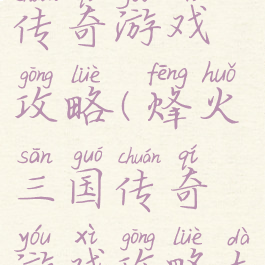 传奇游戏
gōng lüè fēng huǒ
攻略(烽火
sān guó chuán qí
三国传奇
yóu xì gōng lüè dà